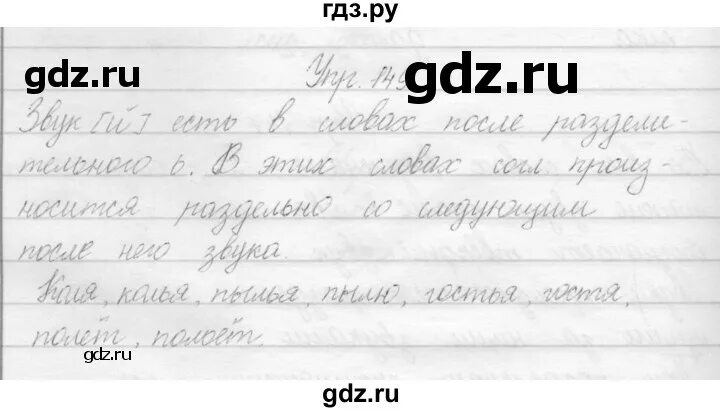 гдз.ру
gdz.ru gdz.ru
Упр. 149
Звук [й'] есть в словах после раздели-
тельного ь. В этих словах согл. произ-
носится раздельно со следующим
после него звука.
Коля, колья, пылья, пылю, гостья, гостя,
полёт, полоёт.
gdz.ru gdz.ru
gdz.ru